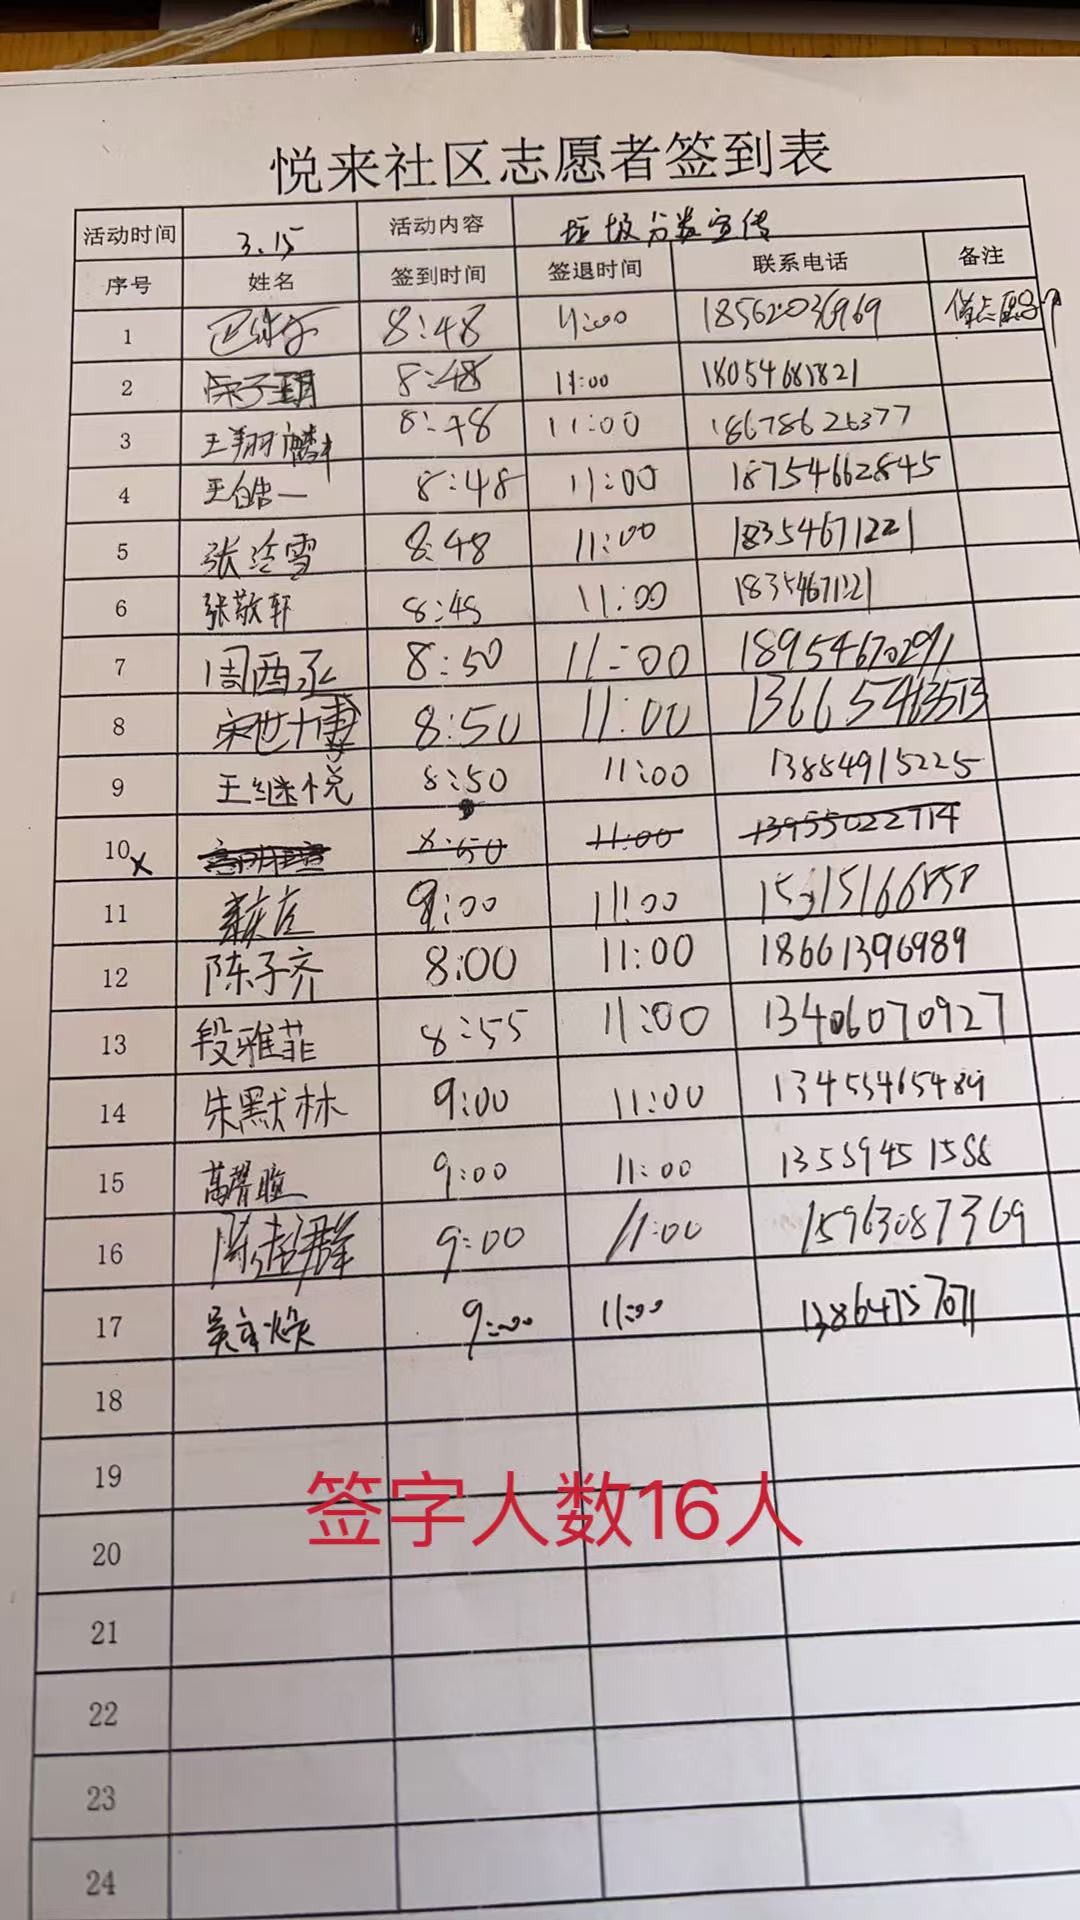 悦来社区志愿者签到表
活动时间 3.15 活动内容 垃圾分类宣传
序号 姓名 签到时间 签退时间 联系电话 备注
1 8:48 11:00 18562036969
2 8:48 11:00
3 王翔麟 8:48 11:00
4 王皓一 8:48 11:00 18754662845
5 张泠雪 8:48 11:00 18354671221
6 张敬轩 8:45 11:00
7 周酉丞 8:50 11:00 18954670291
8 宋世博 8:50 11:00 13665463513
9 王继悦 8:50 11:00 13884915225
10 x 8:50 11:00 13955022714
11 9:00 11:00
12 陈子齐 8:00 11:00 18661396989
13 段雅菲 8:55 11:00 13406070927
14 朱默林 9:00 11:00 13455465489
15 高馨瞳 9:00 11:00 13589451588
16 9:00 11:00 15963087369
17 9:00 11:00 13864757071
18
19
签字人数16人
20
21
22
23
24